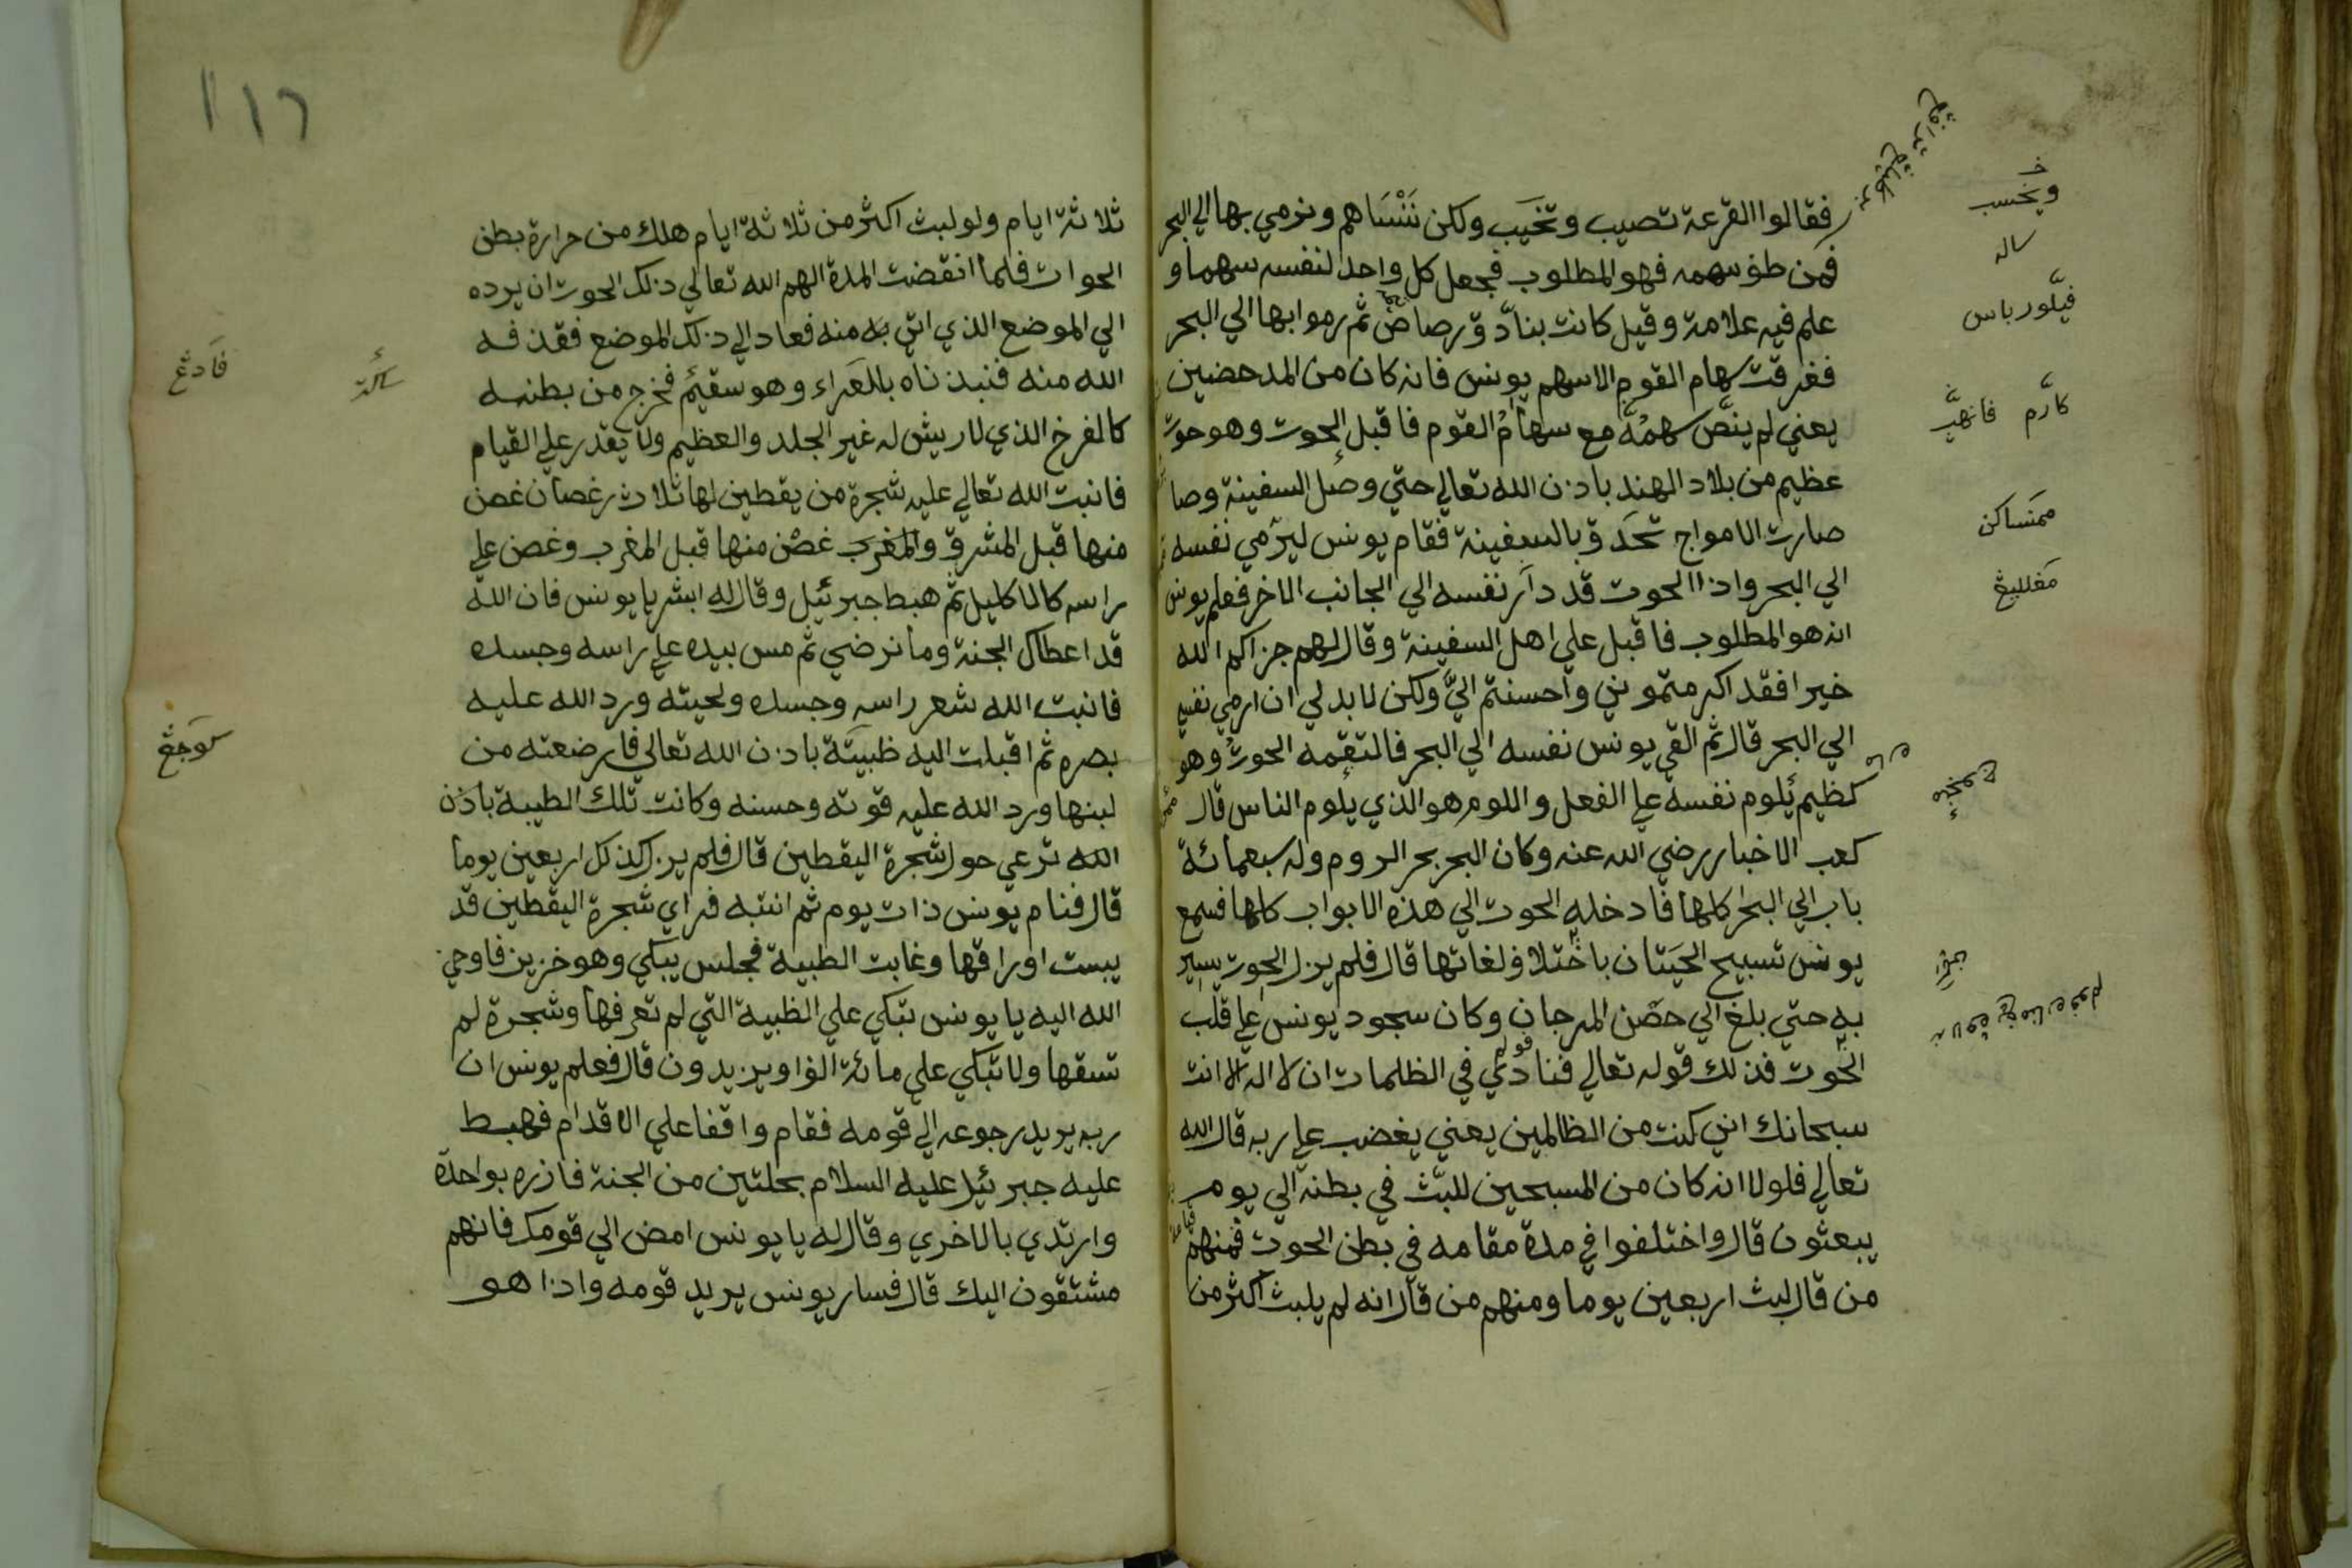 فقالوا القرعة تصيب وتخيب ولكن نَنْسَاهم ونرمي بها الي البحر
فمن طفوسهمه فهو المطلوب فجعل كل واحد لنفسه سهما و
علم فيه علامة وقيل كانت بنادق رصاص ثم رموا بها الي البحر
فغرقت سهام القوم الا سهم يونس فانه كان من المدحضين
يعني لم ينص سهمه مع سهام القوم فاقبل الحوت وهو حوت
عظيم من بلاد الهند باذن الله تعالي حتي وصل السفينة وصا
صارت الامواج تحدق بالسفينة فقام يونس ليرمي نفسه
الي البحر واذا الحوت قد دار نفسه الي الجانب الاخر فعلم يونس
انه هو المطلوب فاقبل علي اهل السفينة وقال لهم جزاكم الله
خيرا فقد اكرمتموني واحسنتم اليَّ ولكن لا بد لي ان ارمي نفسي
الي البحر قال ثم القي يونس نفسه الي البحر فالتقمه الحوت وهو
كظيم يلوم نفسه علي الفعل واللوم هو الذي يلوم الناس قال
كعب الاخبار رضي الله عنه وكان البحر بحر الروم وله سبعمائة
باب الي البحر كلها فادخله الحوت الي هذه الابواب كلها فسمع
يونس تسبيح الحيتان باختلاف لغاتها قال فلم يزل الحوت يسير
به حتي بلغ الي حصن المرجان وكان سجود يونس علي قلب
الحوت فذلك قوله تعالي فنادي في الظلمات ان لا اله الا انت
سبحانك اني كنت من الظالمين يعني يغضب علي ربه قال الله
تعالي فلولا انه كان من المسبحين للبث في بطنه الي يوم
يبعثون قال واختلفوا في مدة مقامه في بطن الحوت فمنهم
من قال لبث اربعين يوما ومنهم من قال انه لم يلبث اكثر من
ويخسب
ساله
فيلورباس
كارم فانهي
ممنساكن
مغلليغ
١١٦
ثلاثة ايام ولو لبث اكثر من ثلاثة ايام هلك من حرارة بطن
الحوات فلما انقضت المدة الهم الله تعالي ذلك الحوت ان يرده
الي الموضع الذي اتي به منه فعاد الي ذلك الموضع فقذفه
الله منه فنبذناه بالعراء وهو سقيم فخرج من بطنه
كالفرخ الذي لا ريش له غير الجلد والعظيم ولا يقدر علي القيام
فانبت الله تعالي عليه شجرة من يقطين لها ثلاث رغصان غصن
منها قبل المشرق والمغرب غصن منها قبل المغرب وغصن علي
راسه كالاكليل ثم هبط جبرئيل وقال له ابشر يا يونس فان الله
قد اعطاك الجنة وما نرضي ثم مس بيده علي راسه وجسده
فانبت الله شعر راسه وجسده ولحيته ورد الله عليه
بصره ثم اقبلت اليه ظبيّة باذن الله تعالي فارضعته من
لبنها ورد الله عليه قوته وحسنه وكانت تلك الطيبة باذن
الله ترعي حول شجرة اليقطين قال فلم يزل كذلك اربعين يوما
قال فنام يونس ذات يوم ثم انتبه فراي شجرة اليقطين قد
يبست اوراقها وغابت الطبية فجلس يبكي وهو خزين فاوحي
الله اليه يا يونس تبكي علي الظبية التي لم تعرفها وشجرة لم
تسقها ولا تبكي علي مائة الفا ويزيدون قال فعلم يونس ان
ربه يريد رجوعه الي قومه فقام واقفا علي الاقدام فهبط
عليه جبرئيل عليه السلام بحلتين من الجنة فازره بواحدة
وارتدي بالاخري وقال له يا يونس امض الي قومك فانهم
مشتقون اليك قال فسار يونس يريد قومه واذا هو
فادغ